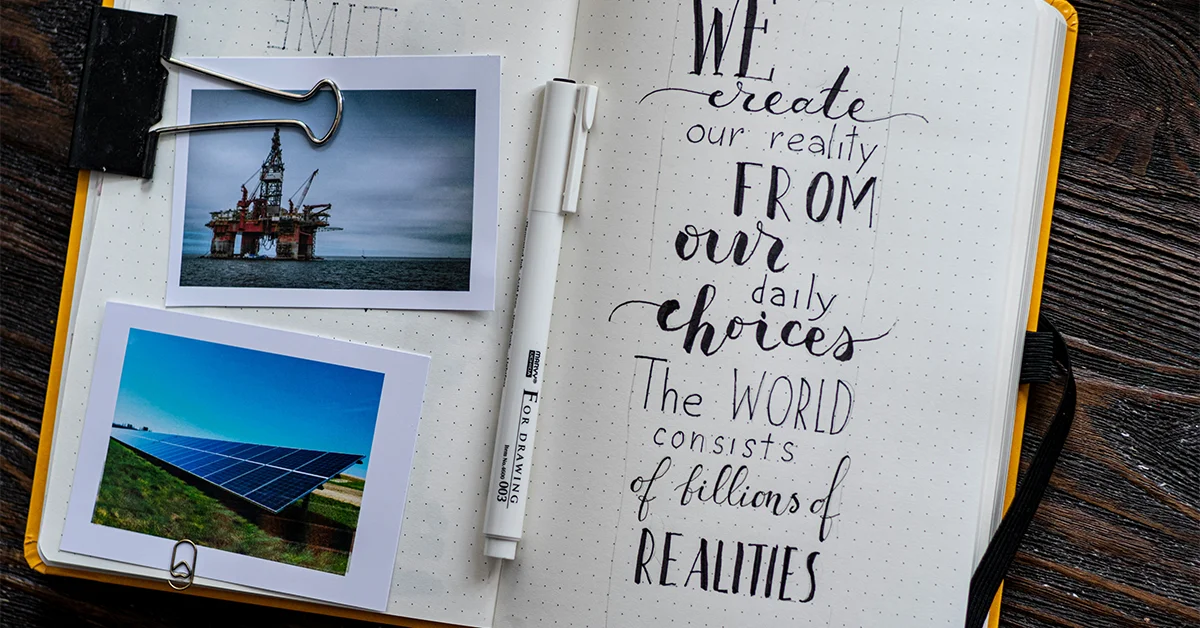 TIME
WE
create
our reality
FROM
our
daily
choices
The WORLD
consists
of billions of
REALITIES
FOR DRAWING